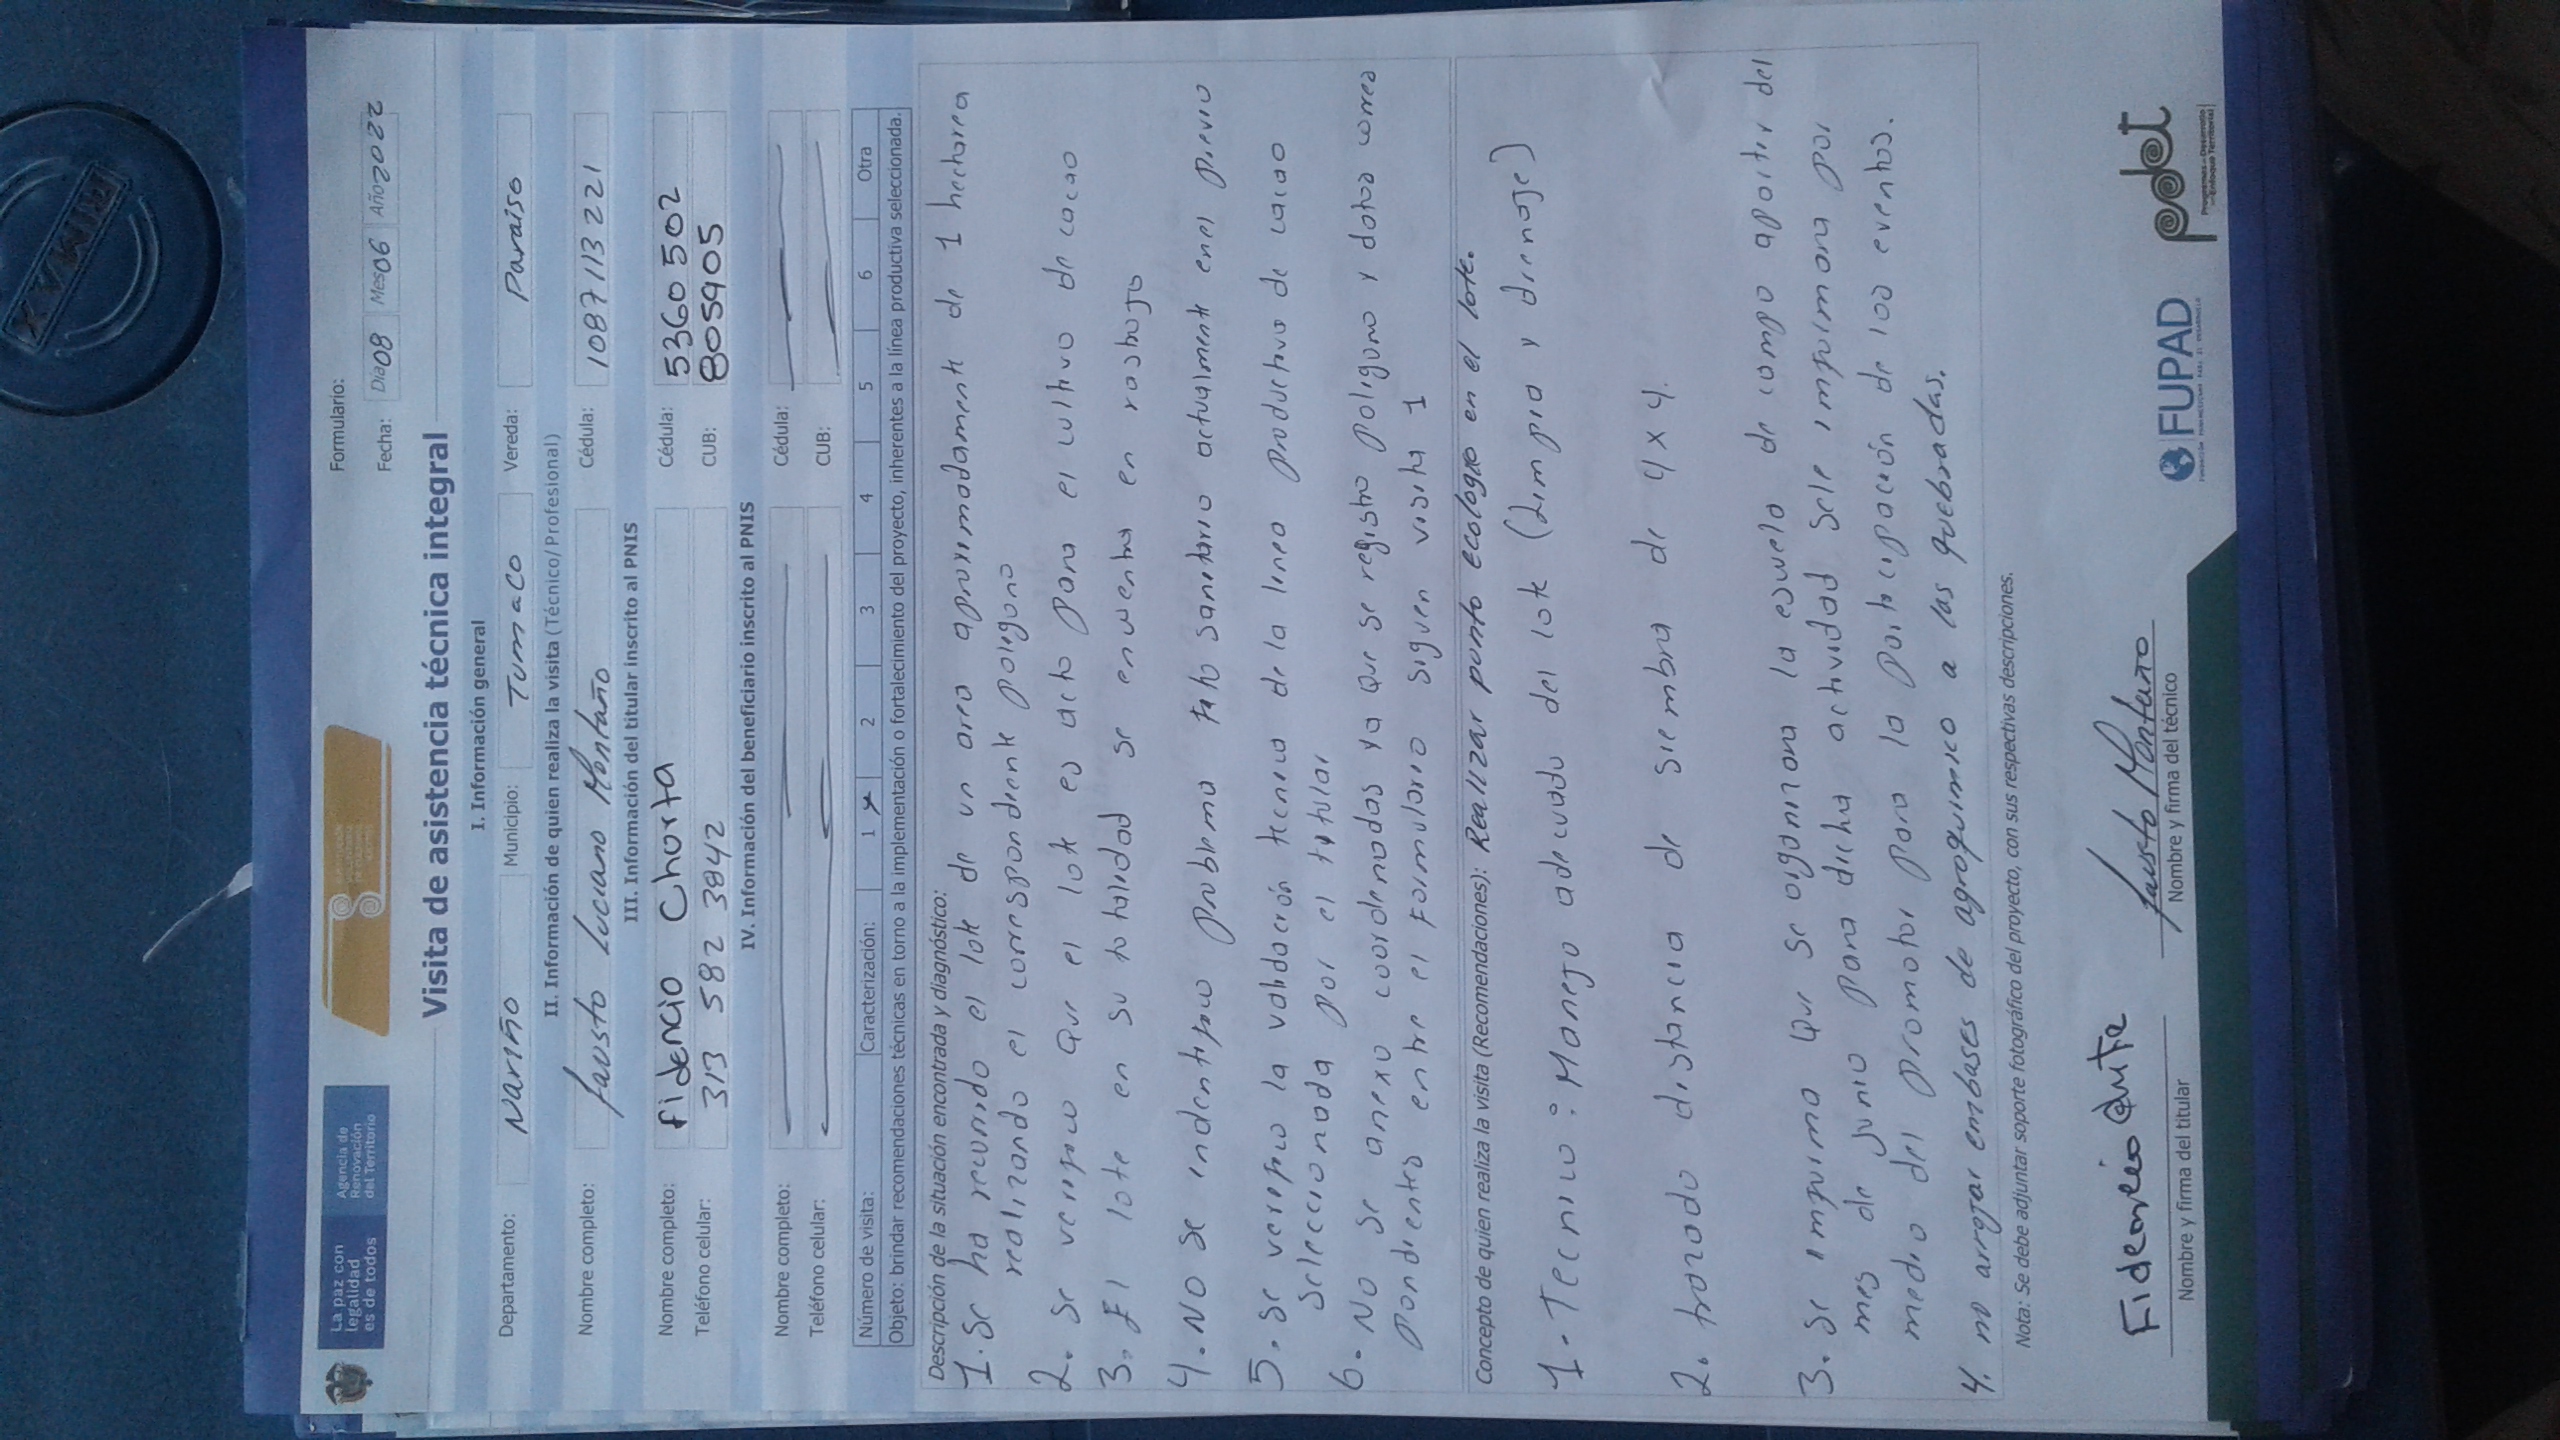 La paz con
legalidad
es de todos
Agencia de
Renovación
del Territorio
Formulario:
Fecha: Dia 08 Mes 06 Año 2022
Visita de asistencia técnica integral
I. Información general
Departamento: Nariño Municipio: Tumaco Vereda: Paraiso
II. Información de quien realiza la visita (Técnico/Profesional)
Nombre completo: Fausto Luciano Montaño Cédula: 1087113221
III. Información del titular inscrito al PNIS
Nombre completo: Fidencio Chorta Cédula: 5360502
Teléfono celular: 313 582 3842 CUB: 8059405
IV. Información del beneficiario inscrito al PNIS
Nombre completo: Cédula:
Teléfono celular: CUB:
Número de visita: Caracterización: 1 x 2 3 4 5 6 Otra
Objeto: brindar recomendaciones técnicas en torno a la implementación o fortalecimiento del proyecto, inherentes a la línea productiva seleccionada.
Descripción de la situación encontrada y diagnóstico:
1. Se ha recorrido el lote de un area aproximadamente de 1 hectarea
realizando el correspondiente poligono
2. Se verifico que el lote es acto para el cultivo de cacao
3. El lote en su totalidad se encuentra en rastrojo
4. No se indentifico problema fito sanitario actualmente en el previo
5. Se verifico la validación tecnica de la linea productiva de cacao
seleccionada por el titular
6. No se anexo coordenadas ya que se registro poligono y datos corres
pondientes entre el formulario siguen visita 1
Concepto de quien realiza la visita (Recomendaciones): Realizar punto ecologico en el lote.
1. Tecnico: Manejo adecuado del lote (Limpia y drenaje)
2. trazado distancia de siembra de 4 x 4.
3. Se informa que se organizara la escuela de campo apartir del
mes de junio para dicha actividad sele informara por
medio del promotor para la participación de 100 eventos.
4. no arrojar embases de agroquimico a las quebradas.
Nota: Se debe adjuntar soporte fotográfico del proyecto, con sus respectivas descripciones.
Fidencio
Fausto Montaño
Nombre y firma del titular
Nombre y firma del técnico
FUPAD
pdet
Programas de Desarrollo
con Enfoque Territorial